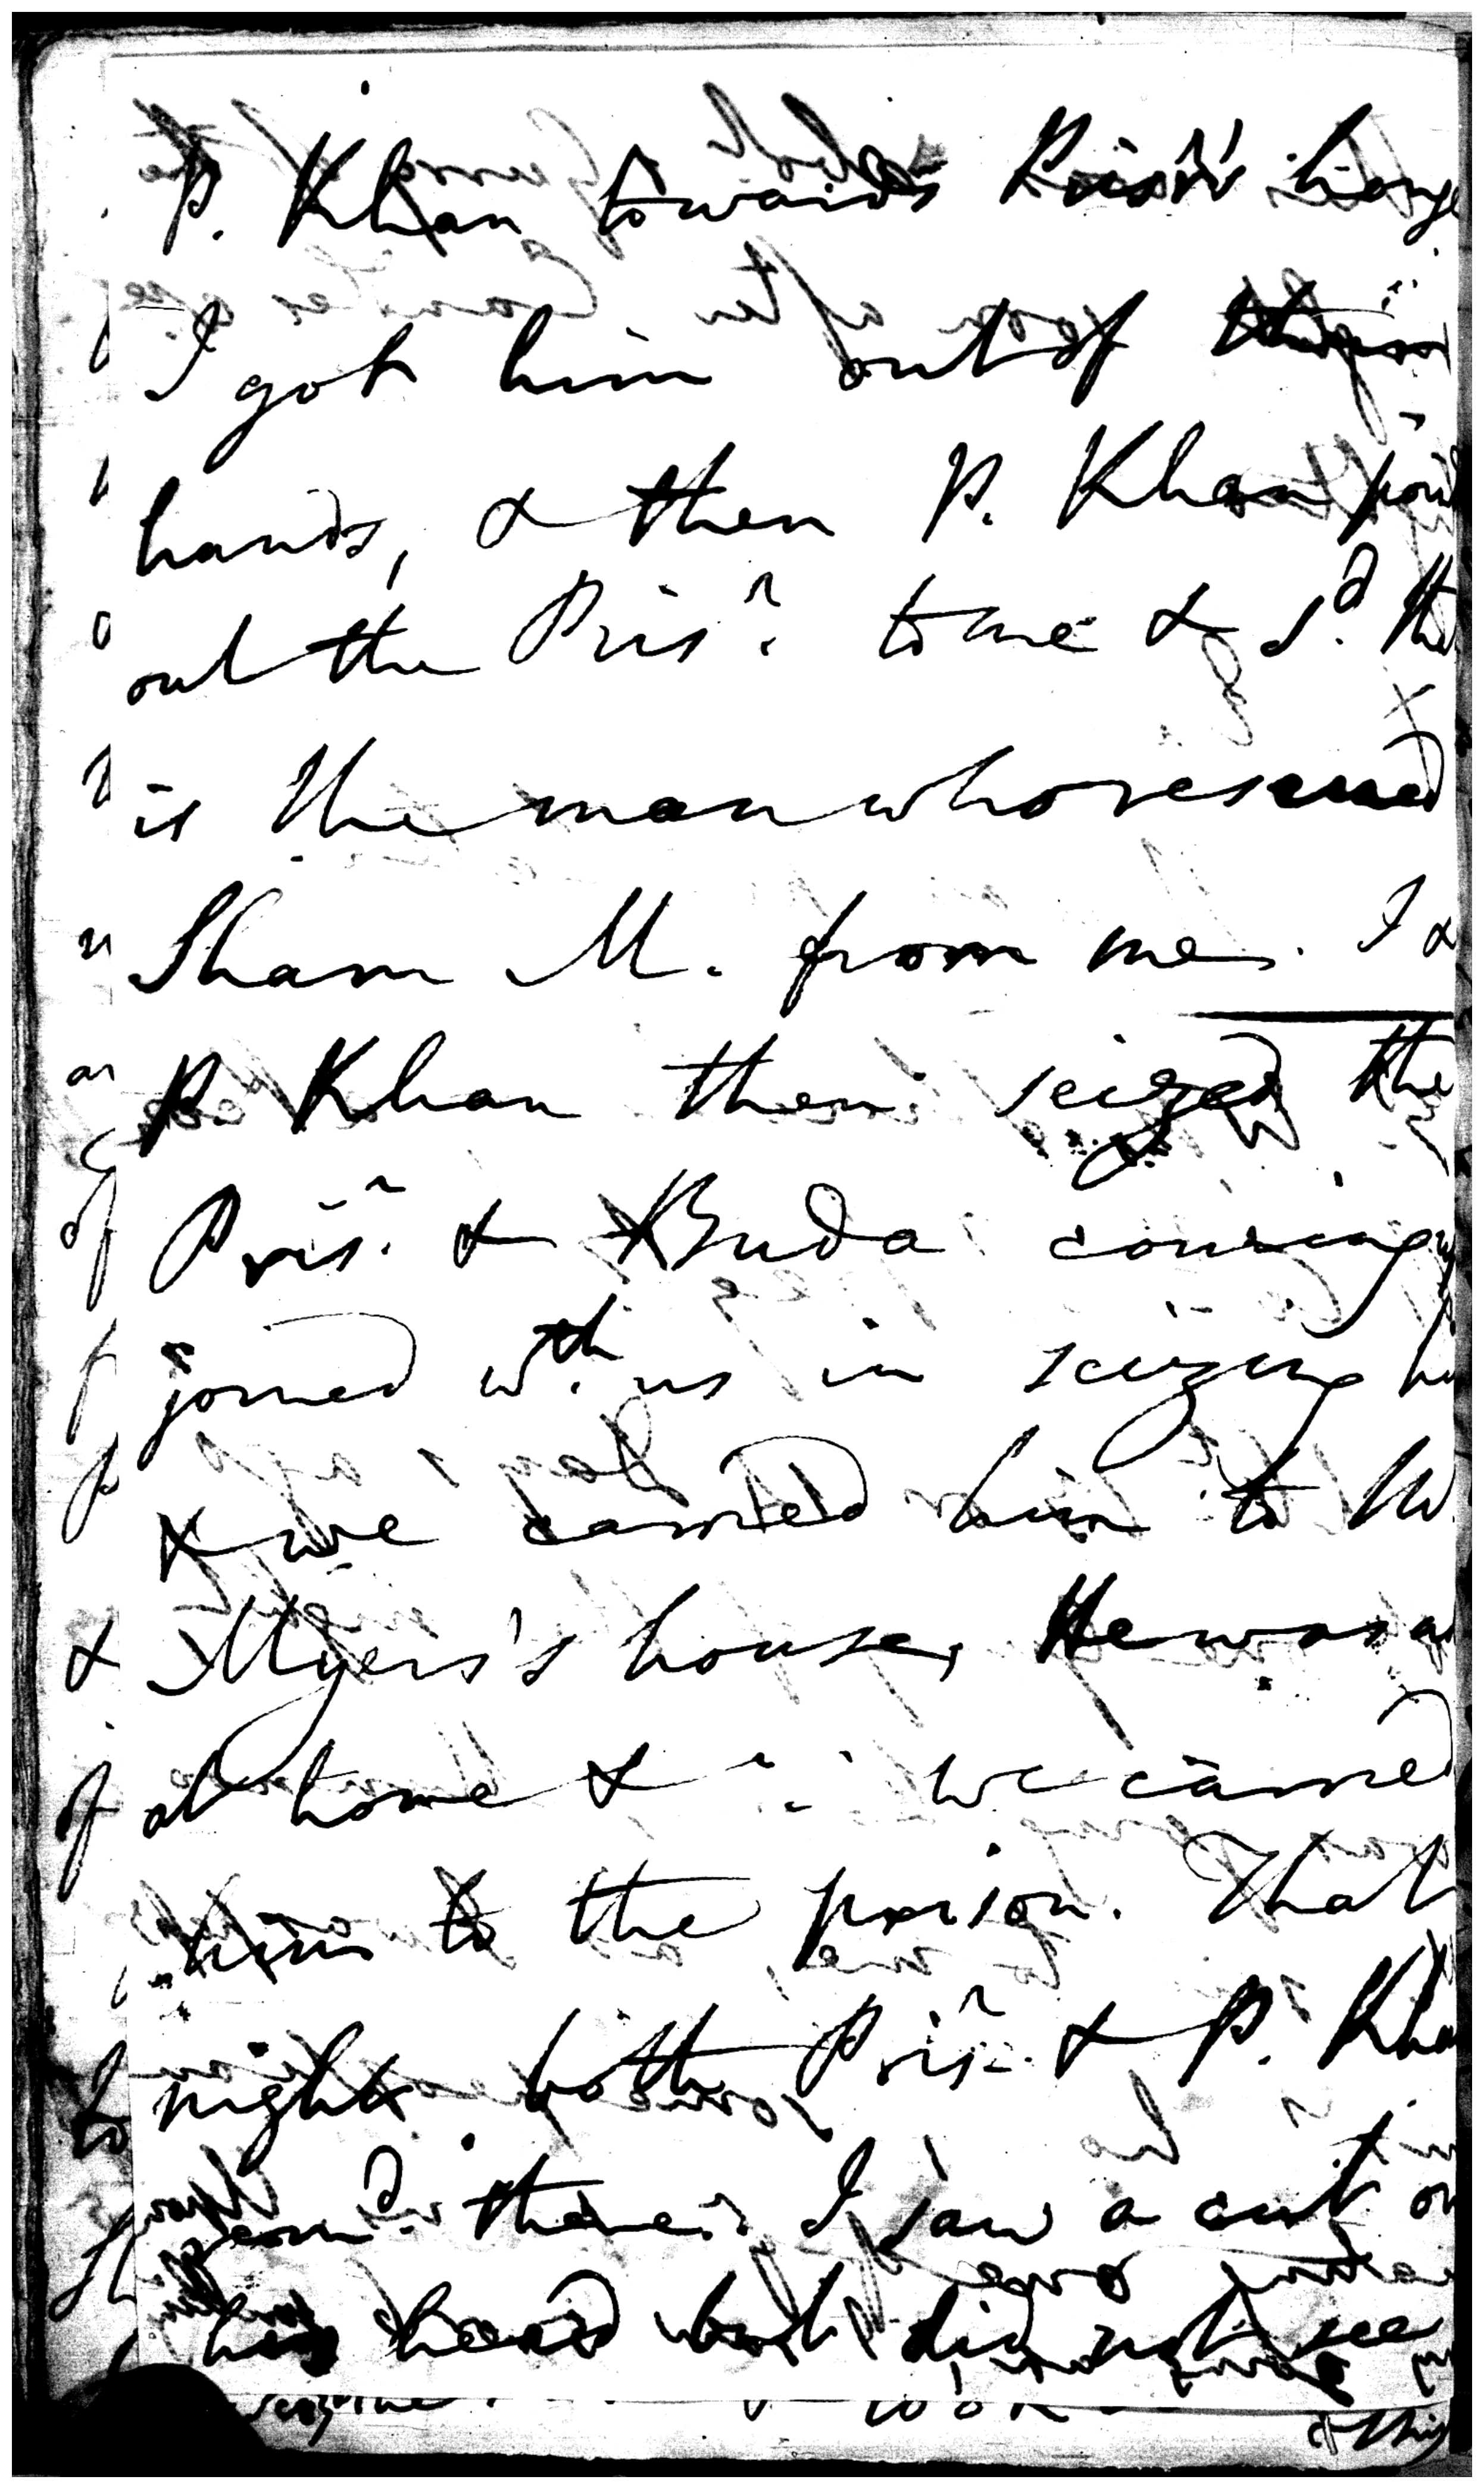 P. Khan towards Prisr's
I got him out of
hands, & then P. Khan
out the Prisr. to me & sd.
is the man who rescued
Sham M. from me. I &
P Khan then seized the
Prisr. & Buda coming
joined wth. us in seizing
& we carried him to
Myers's house, He was
at home & we carried
him to the prison. That
night both Prisr. & P.
remd. there. I saw a cut on
his head but did not see